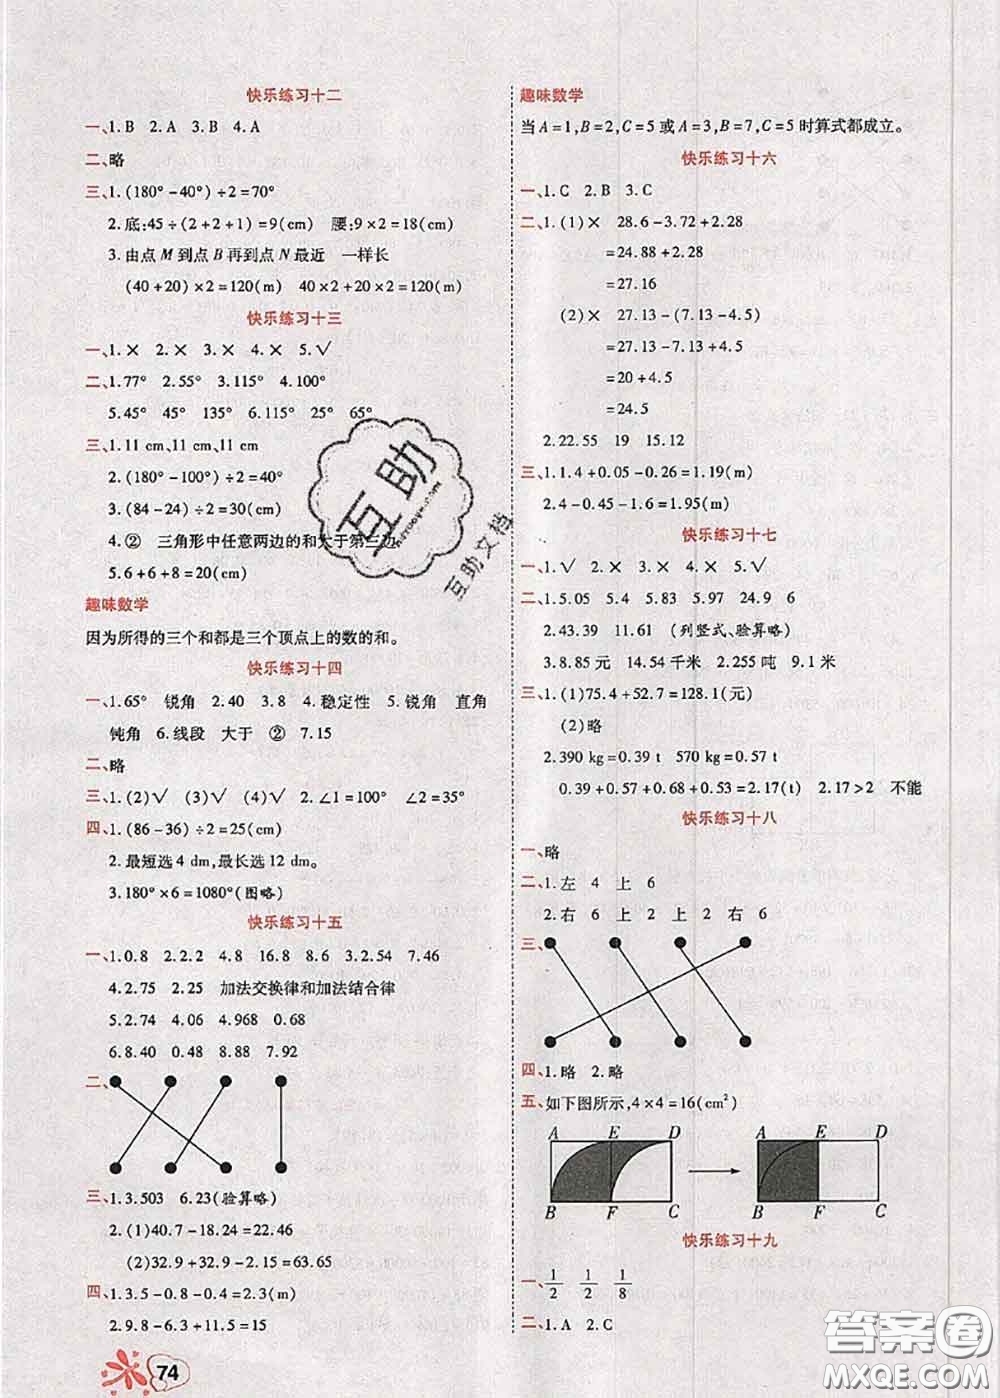 快乐练习十二
一、1.B 2.A 3.B 4.A
二、略
三、1.(180°-40°)÷2=70°
2.底:45÷(2+2+1)=9(cm) 腰:9×2=18(cm)
3.由点M到点B再到点N最近 一样长
(40+20)×2=120(m) 40×2+20×2=120(m)
快乐练习十三
一、1.× 2.× 3.× 4.× 5.√
二、1.77° 2.55° 3.115° 4.100°
5.45° 45° 135° 6.115° 25° 65°
三、1.11 cm、11 cm、11 cm
2.(180°-100°)÷2=40°
3.(84-24)÷2=30(cm)
4.② 三角形中任意两边的和大于第三边
5.6+6+8=20(cm)
趣味数学
因为所得的三个和都是三个顶点上的数的和。
快乐练习十四
一、1.65° 锐角 2.40 3.8 4.稳定性 5.锐角 直角
钝角 6.线段 大于 ② 7.15
二、略
三、1.(2)√ (3)√ (4)√ 2.∠1=100° ∠2=35°
四、1.(86-36)÷2=25(cm)
2.最短选4 dm,最长选12 dm。
3.180°×6=1080°(图略)
快乐练习十五
一、1.0.8 2.2.2 4.8 16.8 8.6 3.2.54 7.46
4.2.75 2.25 加法交换律和加法结合律
5.2.74 4.06 4.968 0.68
6.8.40 0.48 8.88 7.92
二、
三、1.3.503 6.23(验算略)
2.(1)40.7-18.24=22.46
(2)32.9+32.9-2.15=63.65
四、1.3.5-0.8-0.4=2.3(m)
2.9.8-6.3+11.5=15
74
趣味数学
当A=1,B=2,C=5或A=3,B=7,C=5时算式都成立。
快乐练习十六
一、1.C 2.B 3.C
二、1.(1)× 28.6-3.72+2.28
=24.88+2.28
=27.16
(2)× 27.13-(7.13-4.5)
=27.13-7.13+4.5
=20+4.5
=24.5
2.22.55 19 15.12
三、1.1.4+0.05-0.26=1.19(m)
2.4-0.45-1.6=1.95(m)
快乐练习十七
一、1.√ 2.× 3.× 4.× 5.√
二、1.5.05 5.4 5.83 5.97 24.9 6
2.43.39 11.61 (列竖式、验算略)
3.8.85元 14.54千米 2.255吨 9.1米
三、1.(1)75.4+52.7=128.1(元)
(2)略
2.390 kg=0.39 t 570 kg=0.57 t
0.39+0.57+0.68+0.53=2.17(t) 2.17>2 不能
快乐练习十八
一、略
二、1.左 4 上 6
2.右 6 上 2 上 2 右 6
三、
四、1.略 2.略
五、如下图所示,4×4=16(cm²)
A E D A E D
B F C B F C
快乐练习十九
一、1/2 1/2 1/8
二、1.A 2.C
互助
互助文档
答案圈
MXQE.COM